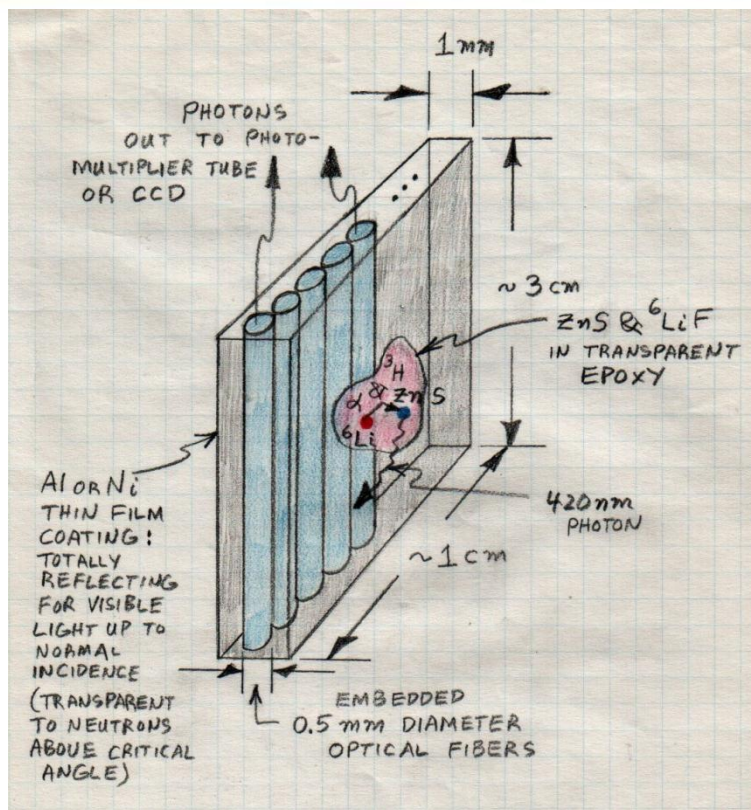 1mm
PHOTONS
OUT TO PHOTO-
MULTIPLIER TUBE
OR CCD
~3cm
ZnS & ⁶LiF
IN TRANSPARENT
EPOXY
³H
α & ZnS
⁶Li
420nm
PHOTON
~1cm
Al OR Ni
THIN FILM
COATING:
TOTALLY
REFLECTING
FOR VISIBLE
LIGHT UP TO
NORMAL
INCIDENCE
(TRANSPARENT
TO NEUTRONS
ABOVE CRITICAL
ANGLE)
EMBEDDED
0.5 mm DIAMETER
OPTICAL FIBERS